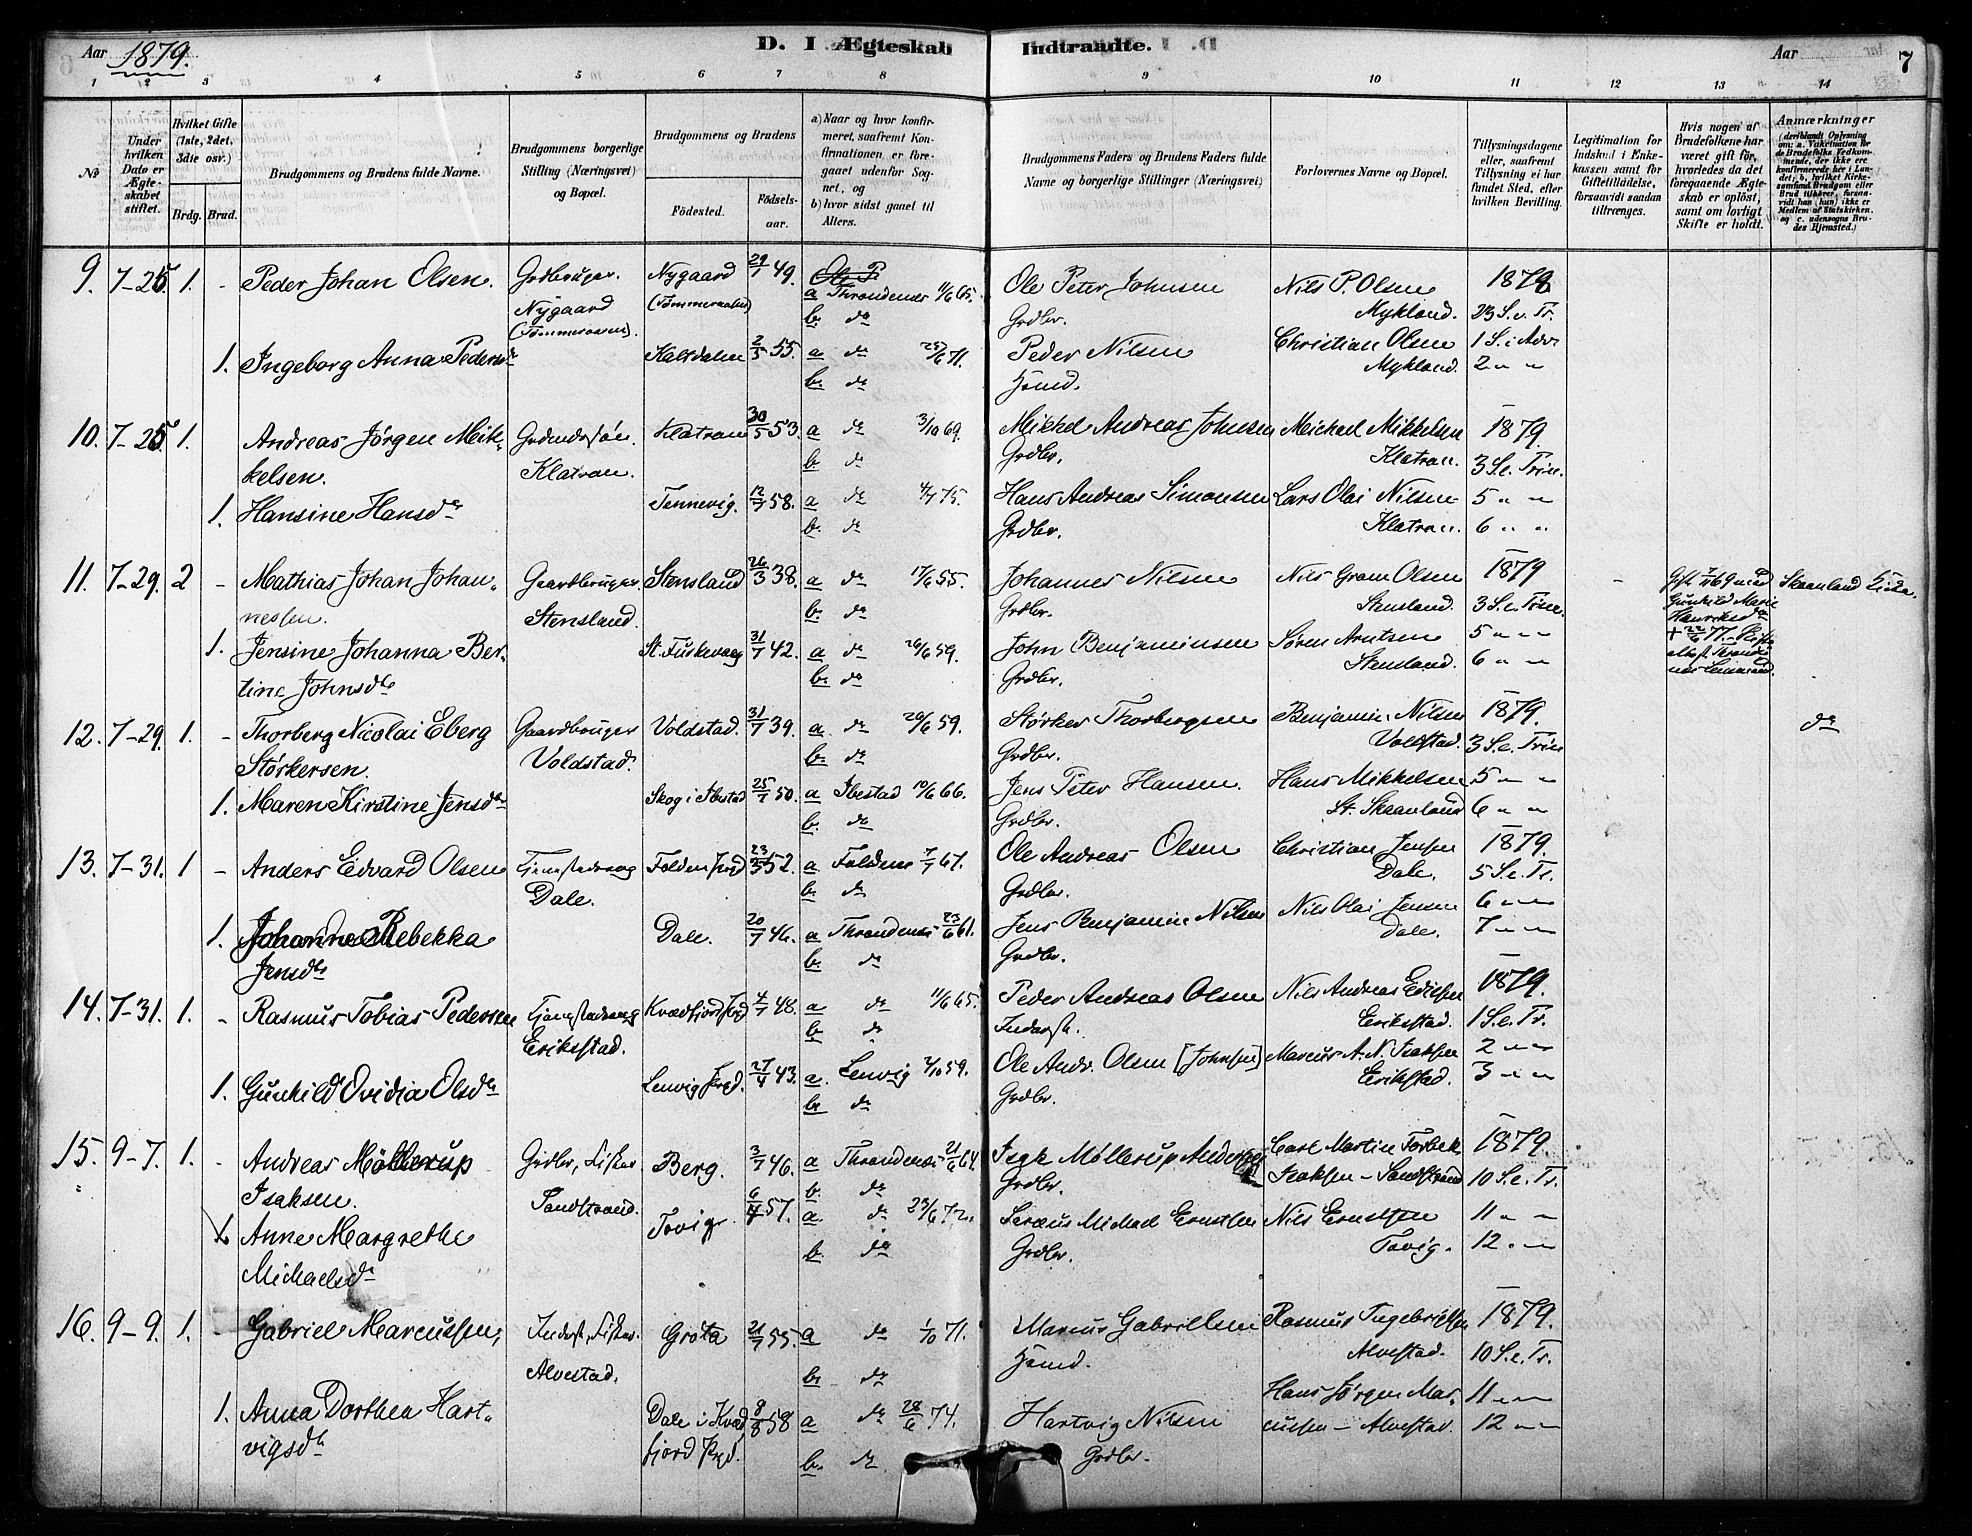 Aar 1879.
D. I Ægteskab Indtraadte.
Aar 7
1 2 3 4 5 6 7 8 9 10 11 12 13 14
No
Under hvilken Dato er Ægteskabet stiftet.
Hvilket Gifte (1ste, 2det, 3die osv.)
Brdg. Brud.
Brudgommens og Brudens fulde Navne.
Brudgommens borgerlige Stilling (Næringsvei) og Bopæl.
Brudgommens og Brudens
Födested.
Födselsaar.
a) Naar og hvor konfirmeret, saafremt Konfirmationen er foregaaet udenfor Sognet, og
b) hvor sidst gaaet til Alters.
Brudgommens Faders og Brudens Faders fulde Navne og borgerlige Stillinger (Næringsvei)
Forlovernes Navne og Bopæl.
Tillysningsdagene eller, saafremt Tillysning ei har fundet Sted, efter hvilken Bevilling.
Legitimation for Indskud i Enkekassen samt for Giftetilladelse, forsaavidt saadan tiltrænges.
Hvis nogen af Brudefolkene har været gift för, hvorledes da det foregaaende Ægteskab er oplöst, samt om lovligt Skifte er holdt.
Anmærkninger
9. 7-25. 1. - Peder Johan Olsen. Grdbruger. Nygaard 29/1 49. a Throndenæs 11/6 65. Ole Peter Johnsen Nils P. Olsen 1879
Nygaard b. do Grdbr. Mykland. 23 S. e. Tr.
1. Ingeborg Anna Pedersdr Kaltdalen 2/5 55. a do 25/6 71. Peder Nilsen Christian Olsen 1 S. i Adv
b. do Hsmd. Mykland. 2 " "
10. 7-25. 1. Andreas Jørgen Mik- Klatran 30/5 53. a do 3/10 69. Mikkel Andreas Johnsen Michael Mikkelsen 1879.
kelsen. Klatran. b. do Grdbr. Klatran. 3 S. e. Trin.
1. Hansine Hansdr Tennevig. 12/7 58. a do 4/7 75. Hans Andreas Simonsen Lars Olai Nilsen 5 " "
b. do Grdbr. Klatran. 6 " "
11. 7-29. 2 - Mathias Johan Johan- Gaardbruger Stensland 26/3 38. a do 17/6 55. Johannes Nilsen Nils Gram Olsen 1879 - Gift 69 med Skaanland Kirke.
nessen. Stensland. b. do Grdbr. Stensland. 3 S. e. Trin. Gunhild Marie
1. Jensine Johanna Ber- St. Fiskevaag 31/7 42. a do 26/6 59. John Benjaminsen Søren Arntsen 5 " " Henriksdr
tine Johnsdr b. do Grdbr. Stensland. 6 " "
12. 7-29. 1. - Thorberg Nicolai Eberg Gaardbruger Voldstad. 31/7 39. a. do 26/6 59. Størker Thorbergsen Benjamin Nilsen 1879. do
Størkersen. Voldstad. b. do Grdbr. Voldstad. 3 S. e. Trin
1. Maren Kirstine Jensdr Skog i Ibestad 25/7 50. a Ibestad 10/6 66. Jens Peter Hansen. Hans Mikkelsen 5 " "
b. do Grdbr. St. Skaanland 6 " "
13. 7-31. 1 - Anders Edvard Olsen Folden 52. a Folden 7/7 67. Ole Andreas Olsen Christian Jensen 1879.
Dale. b. do Grdbr. Dale. 5 S. e. Tr.
1. Johanna Rebekka Dale. 20/7 46. a Throndenæs 23/6 61. Jens Benjamin Nilsen Nils Olai Jensen 6 " "
Jensdr b. do Grdbr. Dale. 7 " "
14. 7-31. 1. - Rasmus Tobias Pedersen Kvædfjord 4/7 48. a do 11/6 65. Peder Andreas Olsen Nils Andreas 1879.
Eriksstad. b do Inderst. Erikstad. 1 S. e. Tr.
1. Gunhild Ovidia Olsdr Lenvig 27/4 43. a. Lenvig 2/10 59. Ole Andr. Olsen [Johnsen] Marcus A. N. Isaksen 2 " "
b. do Grdbr. Erikstad. 3 " "
15. 9-7. 1. - Andreas Møllerup Grdbr, Fisker Berg. 3/7 46. a Throndenæs 21/6 64. Isak Møllerup Carl Martin Torbek 1879.
Isaksen. Sandstrand. b. do Grdbr. Isaksen - Sandstrand 10 S. e. Tr.
1. Anne Margrethe Tovig. 57. a. do 23/6 72. Michael Ernstsen Nils Ernstsen 11 " "
Michaelsdr b. do Grdbr. Tovig. 12 " "
16. 9-9. 1. - Gabriel Marcussen, Inderst, Fisker. Grøta 21/7 55. a do 1/10 71. Marcus Gabrielsen Rasmus Ingebrigtsen 1879.
Alvestad. b. do Hsmd. Alvestad. 10 S. e. Tr.
1. Anna Dorthea Hart- Dale i Kvæd- 8/8 58 a do 28/6 74. Hartvig Nilsen Hans Jørgen Mar- 11 " "
vigsdr fjord b. do Grdbr. cussen - Alvestad. 12 " "